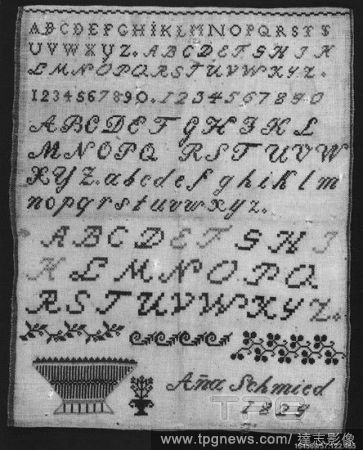 ABCDEFGHIKLMNOPQRSTS
UVWXYZ. ABCDEFGHIK
LMNOPQRSTUVWXYZ.
1234567890. 1234567890
ABCDEFGHIKL
MNOPQ RSTUVW
XYZ. abcdefghiklm
nopqrstuvwxyz.
ABCDEFGHI
KLMNOPQ
RSTUVWXYZ.
Aña Schmied
1829
www.tpgnews.com/達志影像